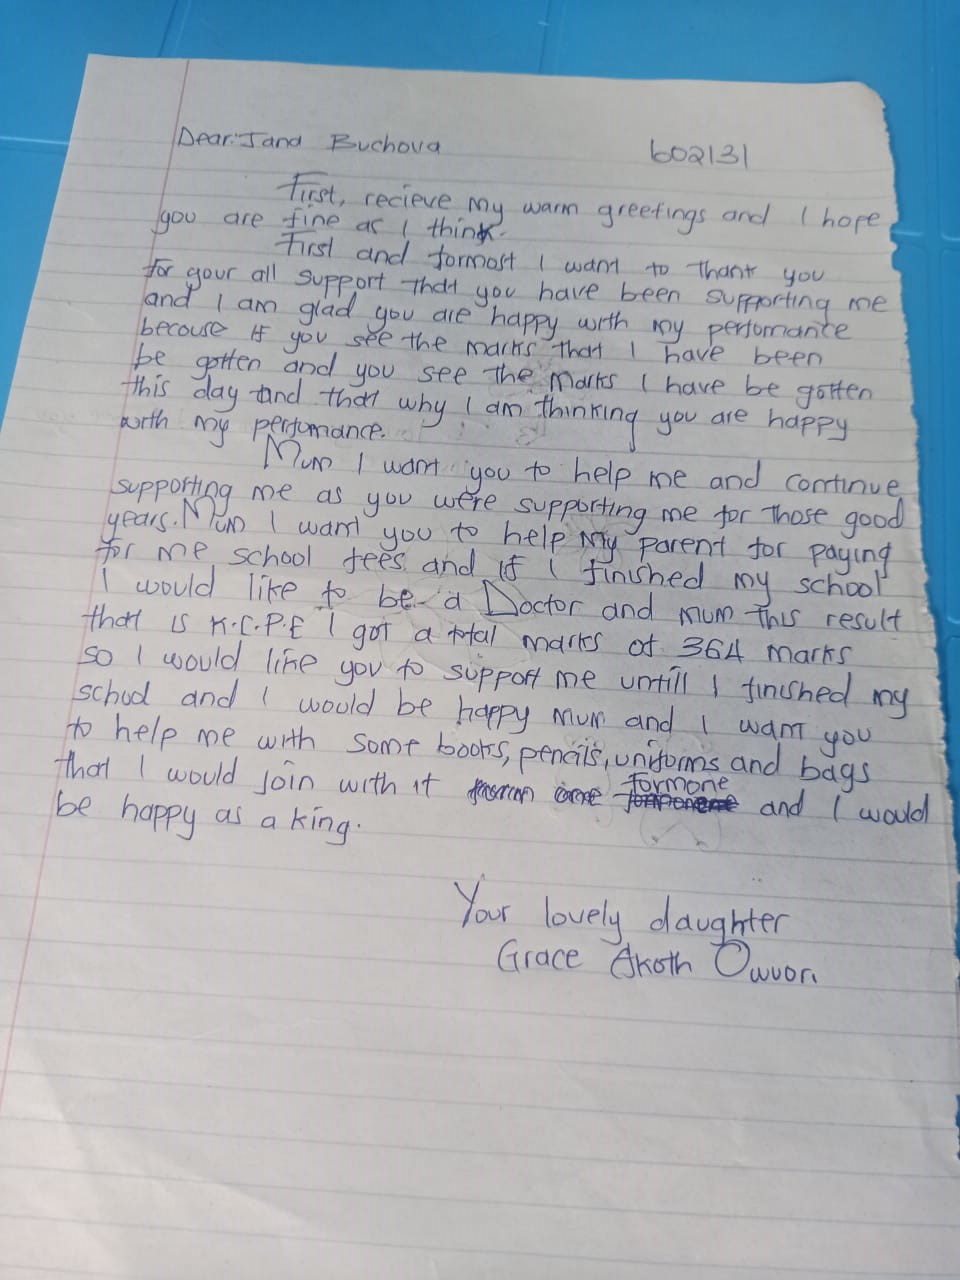 Dear:Jand Buchova 602131
First, recieve my warm greetings and I hope
you are fine as I think.
First and formost I want to thank you
for your all support that you have been suppporting me
and I am glad you are happy with my perfomance
because if you see the marks that I have been
be gotten and you see the marks I have be gotten
this day and that why I am thinking you are happy
with my perfomance.
Mum I want you to help me and continue
supporting me as you were supporting me for those good
years. Mum I want you to help my parent for paying
for me school fees and if I finished my school
I would like to be a Doctor and mum this result
that is K.C.P.E I got a total marks of 364 marks
so I would like you to support me untill I finished my
school and I would be happy mum and I want you
to help me with some books, pencils, uniforms and bags
that I would join with it formone and I would
be happy as a king.
Your lovely daughter
Grace Akoth Owuor.